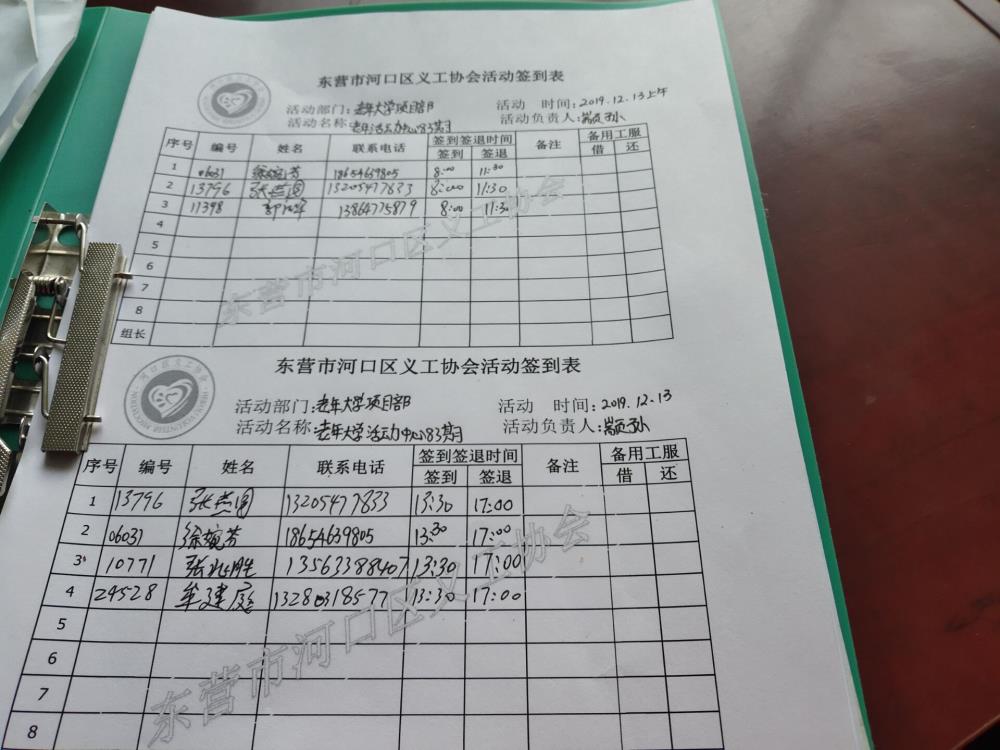 东营市河口区义工协会活动签到表
活动部门：老年大学项目部 活动 时间：2019.12.13上午
活动名称：老年活动中心83期 活动负责人：
序号 编号 姓名 联系电话 签到签退时间 备注 备用工服
签到 签退 借 还
1 06031 徐婉芳 18654639805 8:00 11:30
2 13796 张 13205477833 8:00 11:30
3 11398 13864775879 8:00 11:30
4
5
6
7
8
组长
东营市河口区义工协会
东营市河口区义工协会活动签到表
活动部门：老年大学项目部 活动 时间：2019.12.13
活动名称：老年大学活动中心83期 活动负责人：
序号 编号 姓名 联系电话 签到签退时间 备注 备用工服
签到 签退 借 还
1 13796 张 13205477833 13:30 17:00
2 06031 徐婉芳 18654639805 13:30 17:00
3 10771 张兆胜 13563388407 13:30 17:00
4 24528 牟建庭 13280318577 13:30 17:00
5
6
7
8
东营市河口区义工协会